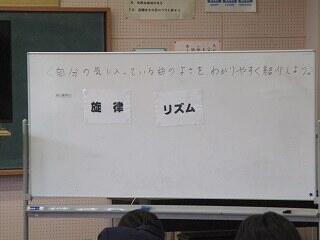 自分の気に入っている曲のよさをわかりやすく紹介しよう。
旋律
リズム